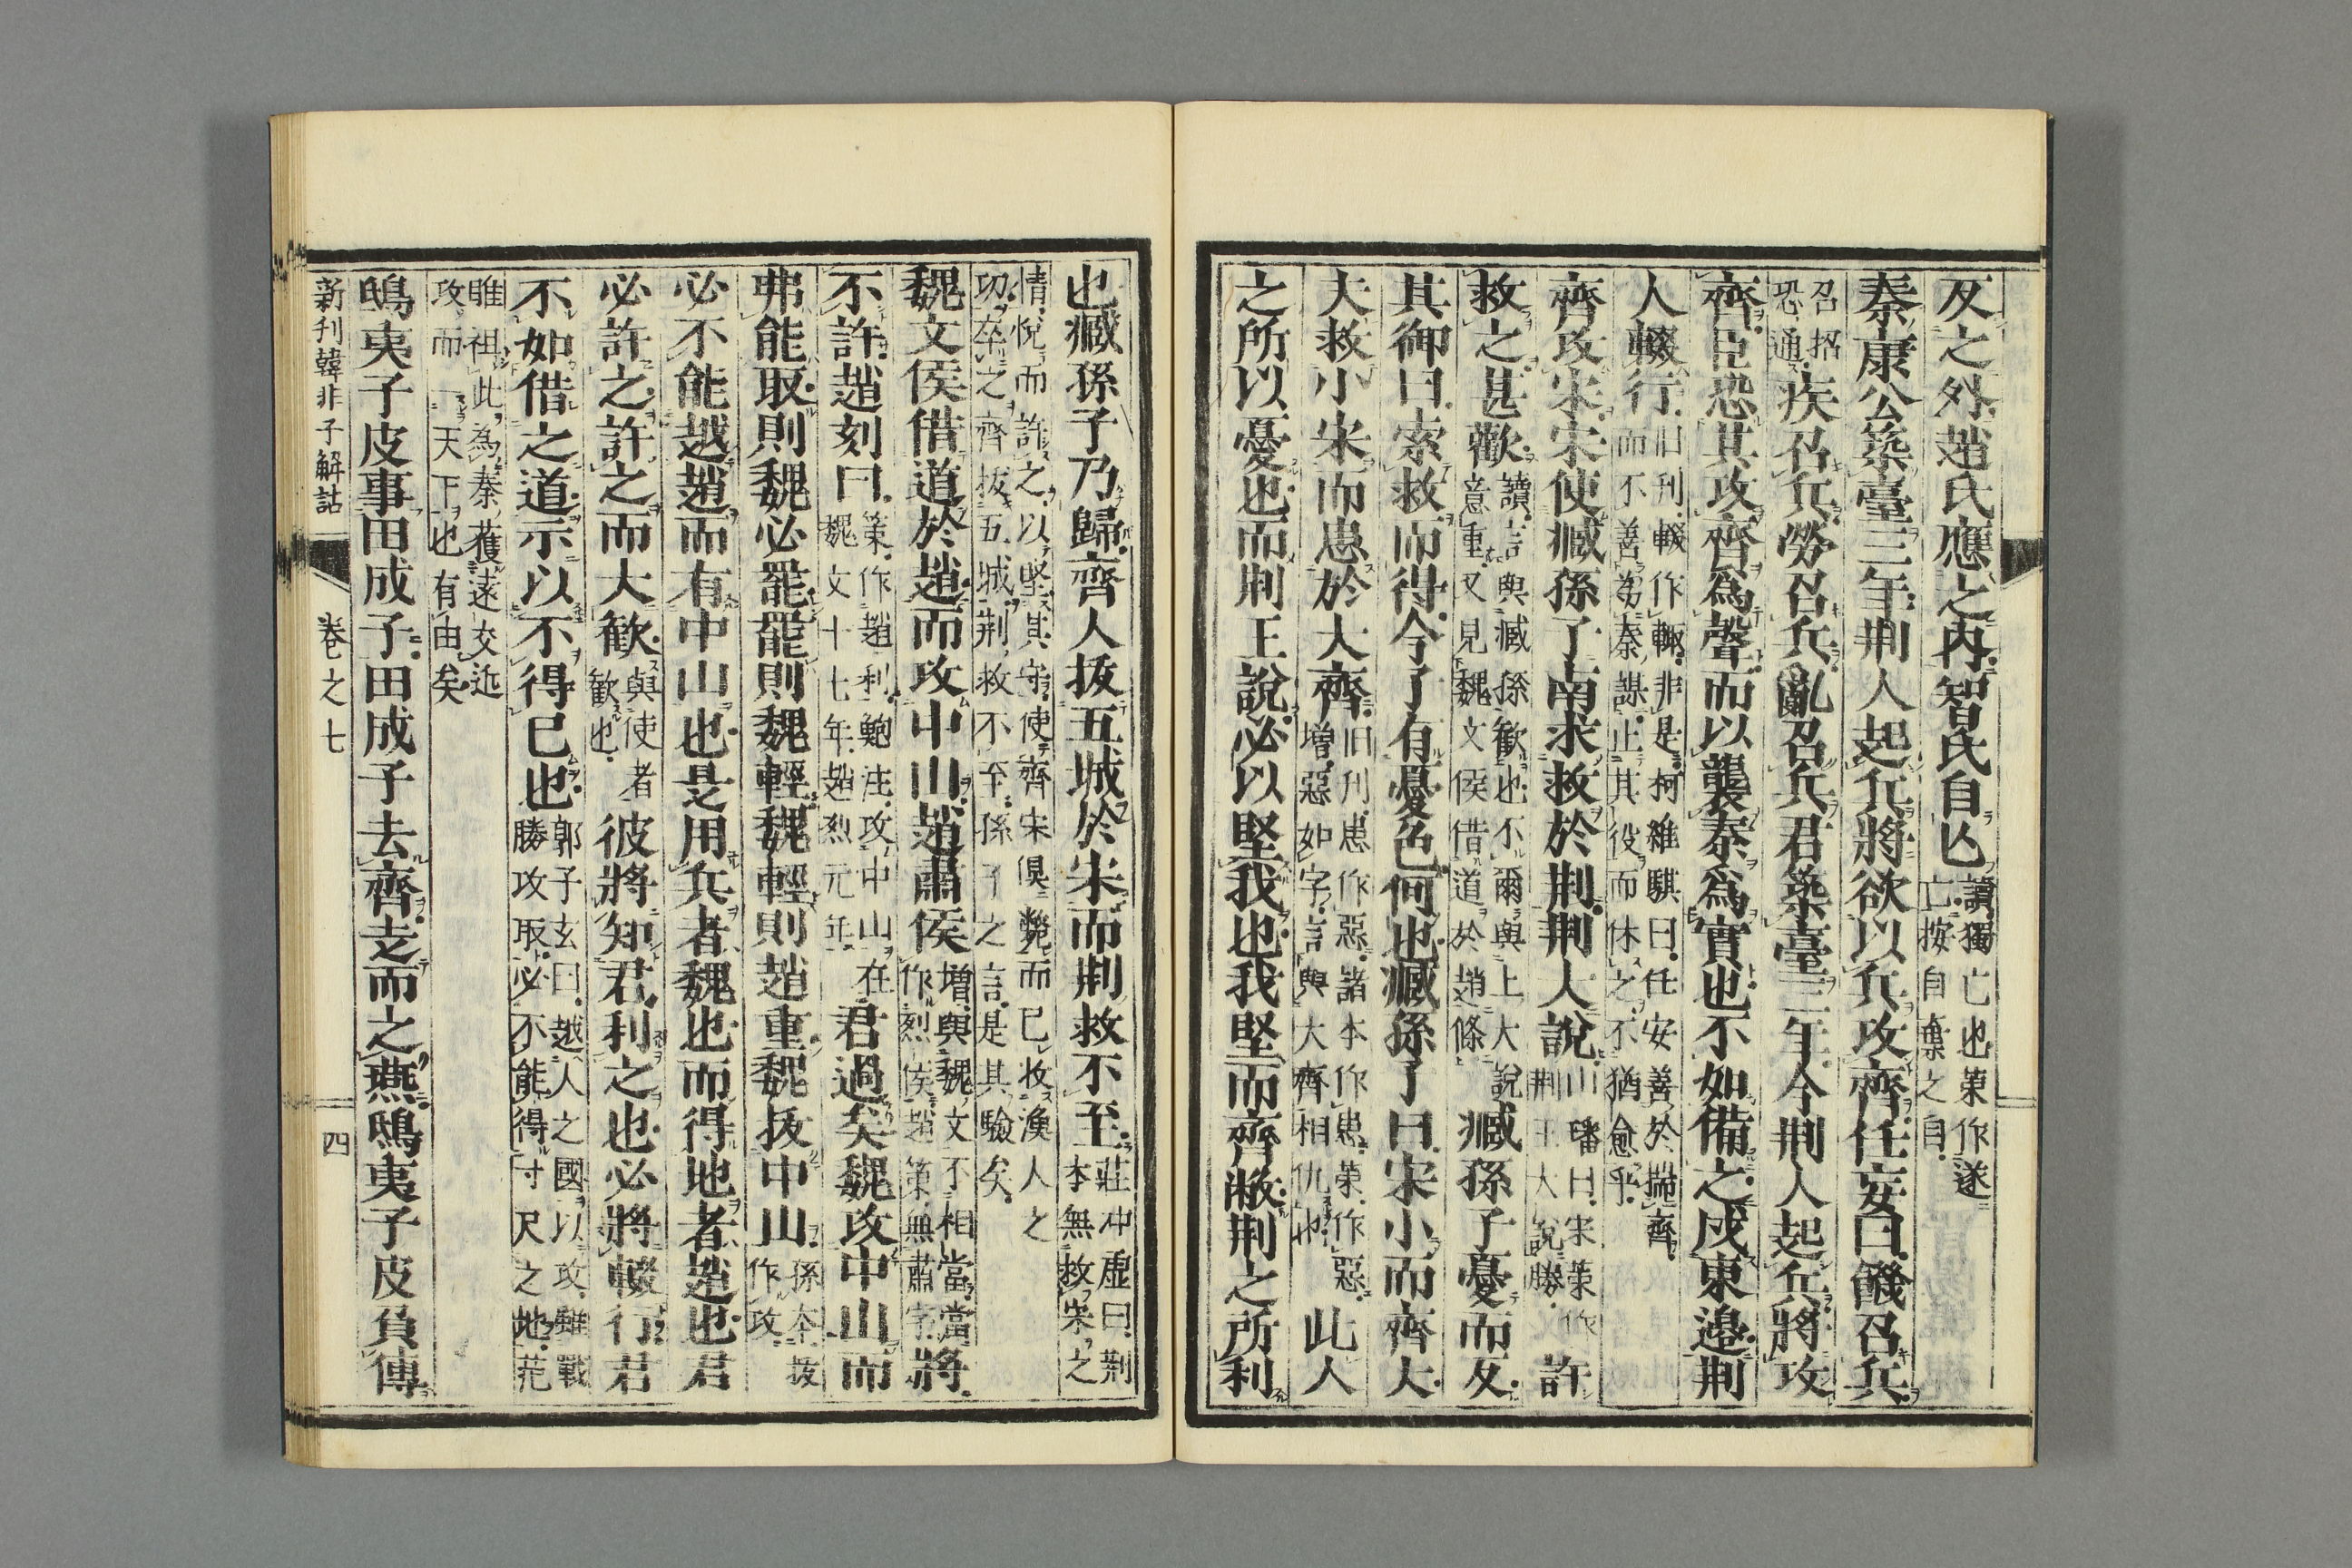 反之外趙氏應之內智氏自亾讀獨亡也策作遂亡按自稟之自
秦康公築臺三年荆人起兵將欲以兵攻齊任妄曰饑召兵
召招恐通疾召兵勞召兵亂召兵君築臺三年今荆人起兵將攻
齊臣恐其攻齊爲聲而以襲秦爲實也不如備之戍東邊荆
人輟行旧刋輟作輙非是柯維騏曰任安善於揣齊而不善爲秦謀止其役而休之不猶愈乎
齊攻宋宋使臧孫子南求救於荆荆大說山璠曰宋策作荆王大說勝許
救之甚歡讀言與臧孫歡也不爾與上大說意重又見魏文侯借道於趙條臧孫子憂而反
其御曰索救而得今子有憂色何也臧孫子曰宋小而齊大
夫救小宋而患於大齊旧刋患作惡諸本作患策作惡增惡如字言與大齊相仇也此人
之所以憂也而荆王說必以堅我也我堅而齊敝荆之所利
也臧孫子乃歸齊人拔五城於宋而荆救不至莊冲虛曰荆本無救宋之
情悅而許之以堅其守使齊宋俱斃而已收漁人之功卒之齊拔五城荆救不至孫子之言是其驗矣
魏文侯借道於趙而攻中山趙肅侯增與魏文不相當當作烈侯趙策無肅字將
不許趙刻曰策作趙利鮑注攻中山在魏文十七年趙烈元年君過矣魏攻中山而
弗能取則魏必罷罷則魏輕魏輕則趙重魏拔中山孫本拔作攻
必不能越趙而有中山也是用兵者魏也而得地者趙也君
必許之許之而大歡與使者歡也彼將知君利之也必將輟行君
不如借之道示以不得已也郭子玄曰越人之國以攻雖戰勝攻取必不能得寸尺之地范
睢祖此為秦獲遠交近攻而一天下也有由矣
鴟夷子皮事田成子田成子去齊走而之燕鴟夷子皮負傳
新刋韓非子解詁 卷之七 四